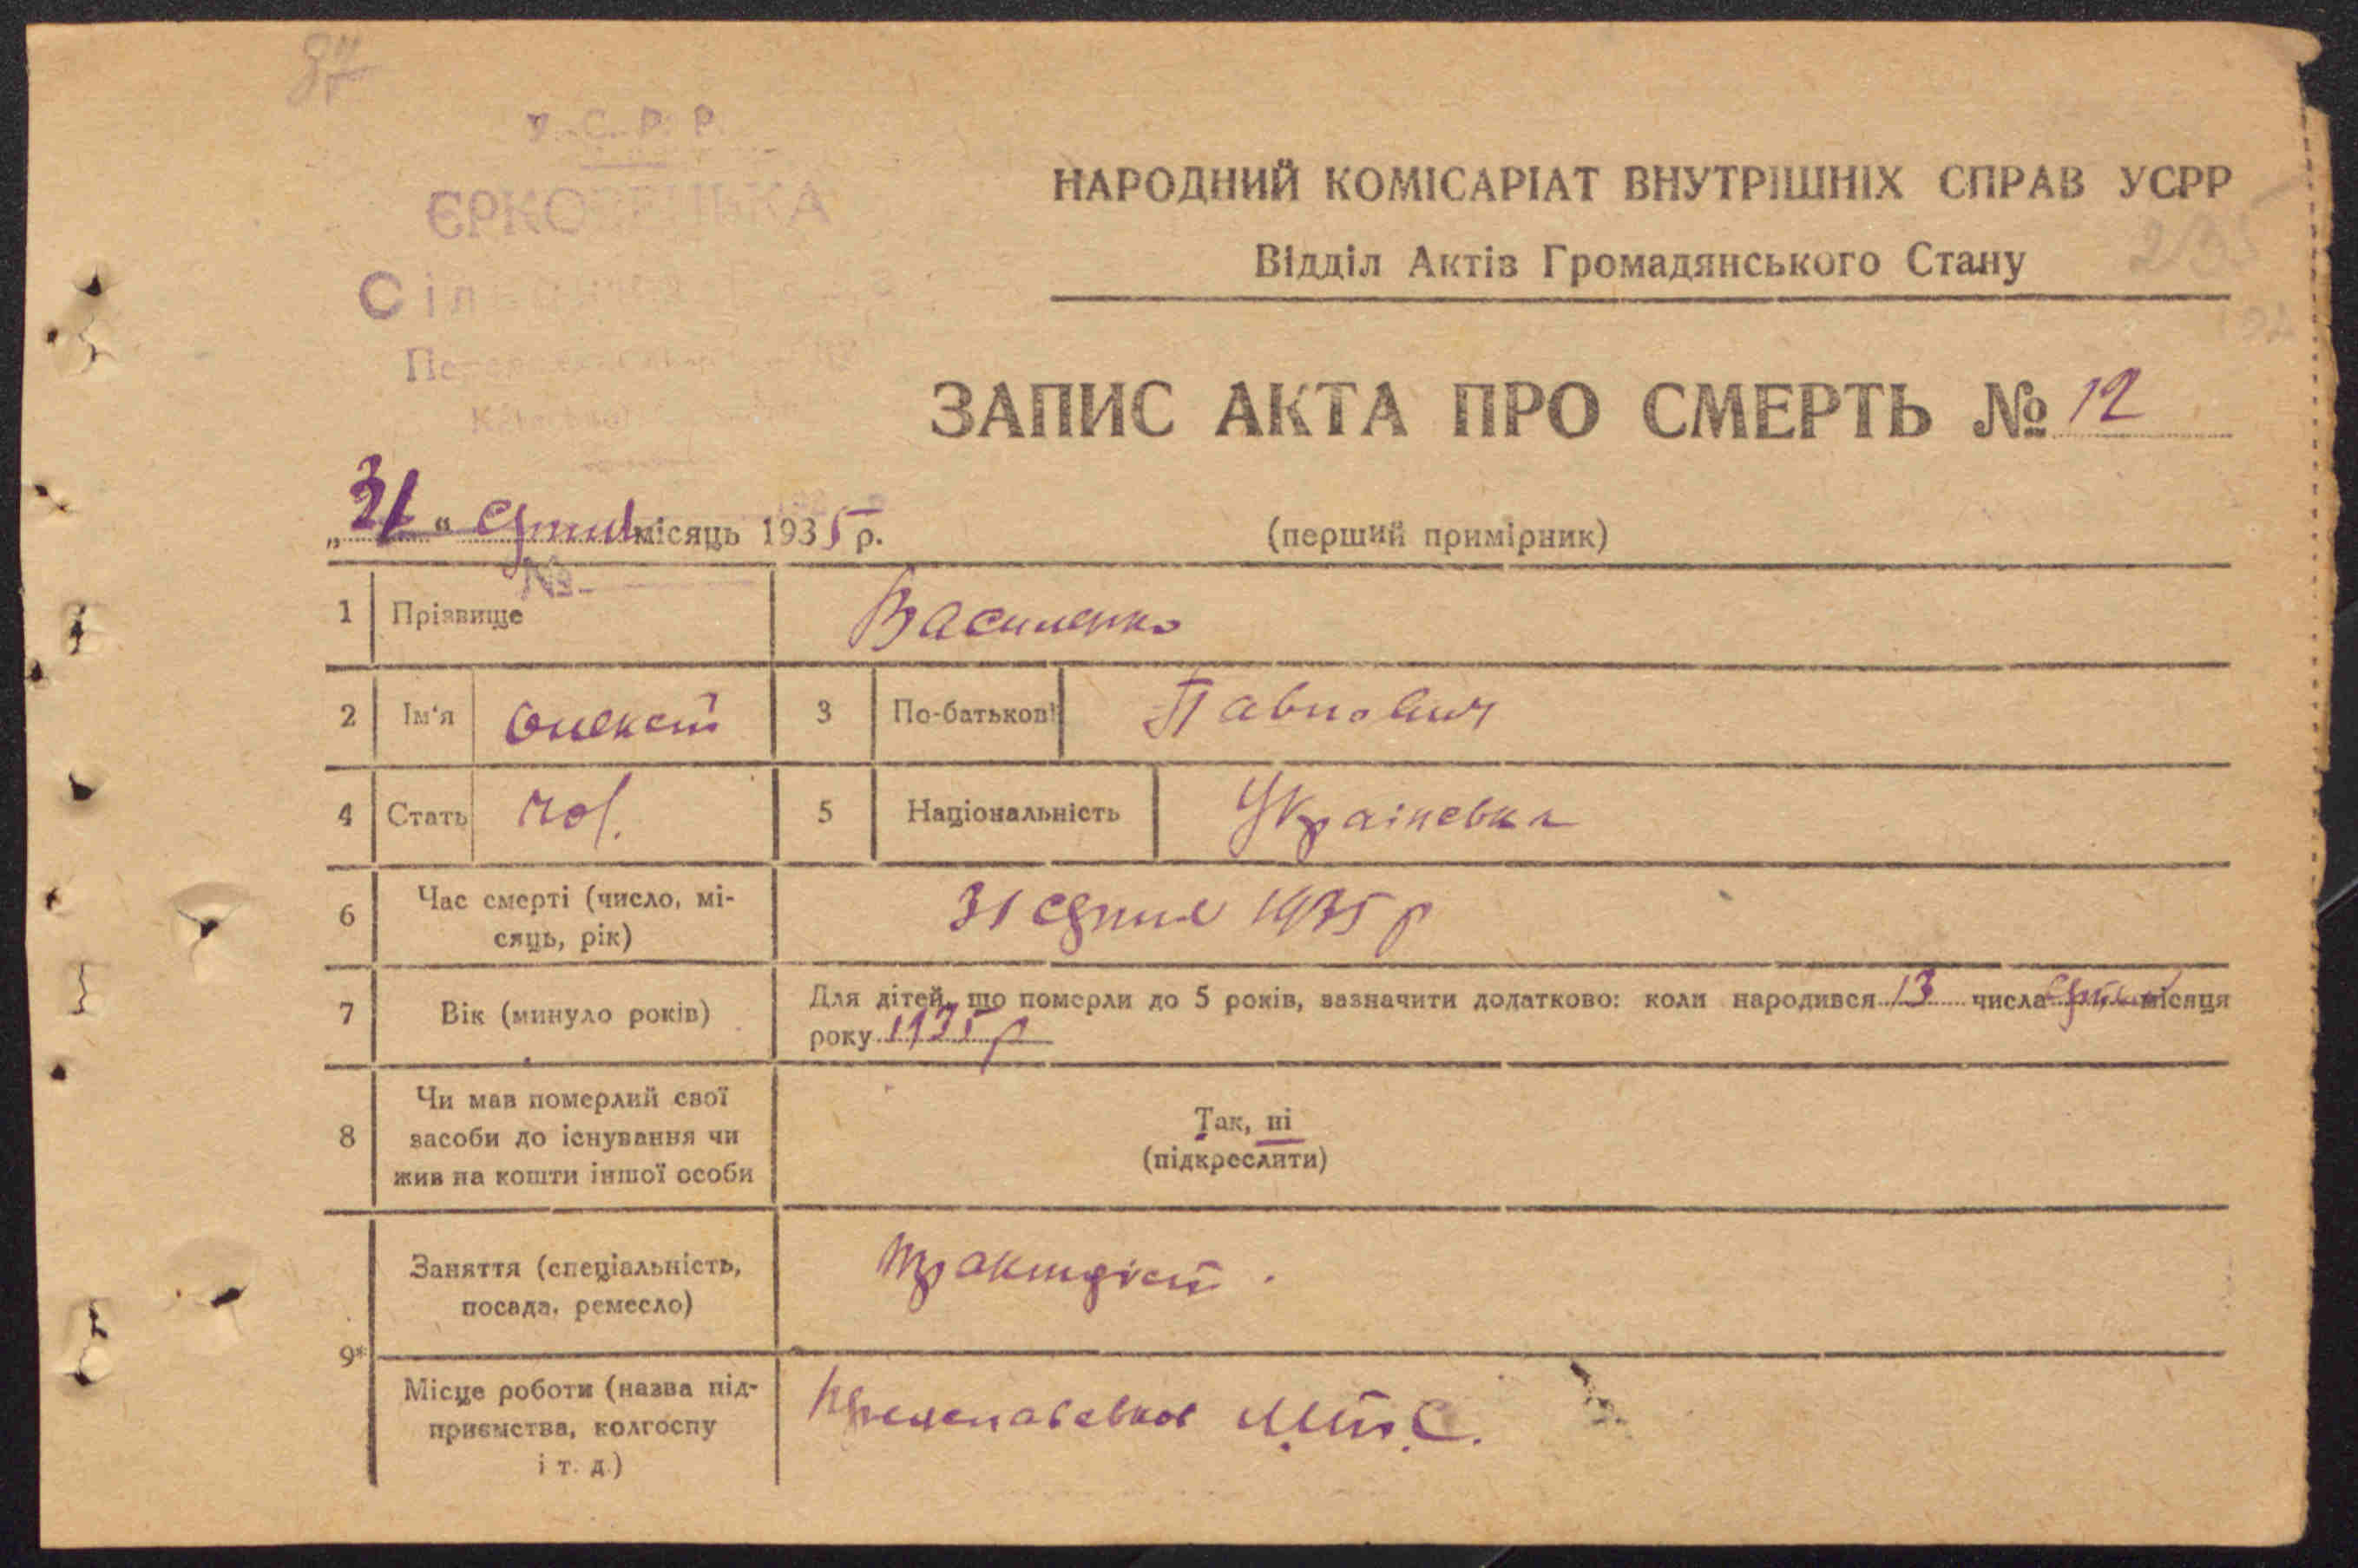 У. С. Р. Р.
ЄРКОВЕЦЬКА
НАРОДНИЙ КОМІСАРІАТ ВНУТРІШНІХ СПРАВ УСРР
Відділ Актів Громадянського Стану
235
ЗАПИС АКТА ПРО СМЕРТЬ № 12
„31“ серпня місяць 1935 р.
(перший примірник)
№
1 Прізвище Василенко
2 Ім'я Олексій 3 По-батькові Павлович
4 Стать чол. 5 Національність Українська
6 Час смерті (число, мі-
сяць, рік) 31 серпня 1935 р
7 Вік (минуло років) Для дітей, що померли до 5 років, зазначити додатково: коли народився 13 числа серпня місяця
року 1935 р
8 Чи мав померлий свої
засоби до існування чи
жив на кошти іншої особи
Так, ні
(підкреслити)
9* Заняття (спеціальність,
посада, ремесло) тракторист.
Місце роботи (назва під-
приємства, колгоспу
і т. д.) М.Т.С.